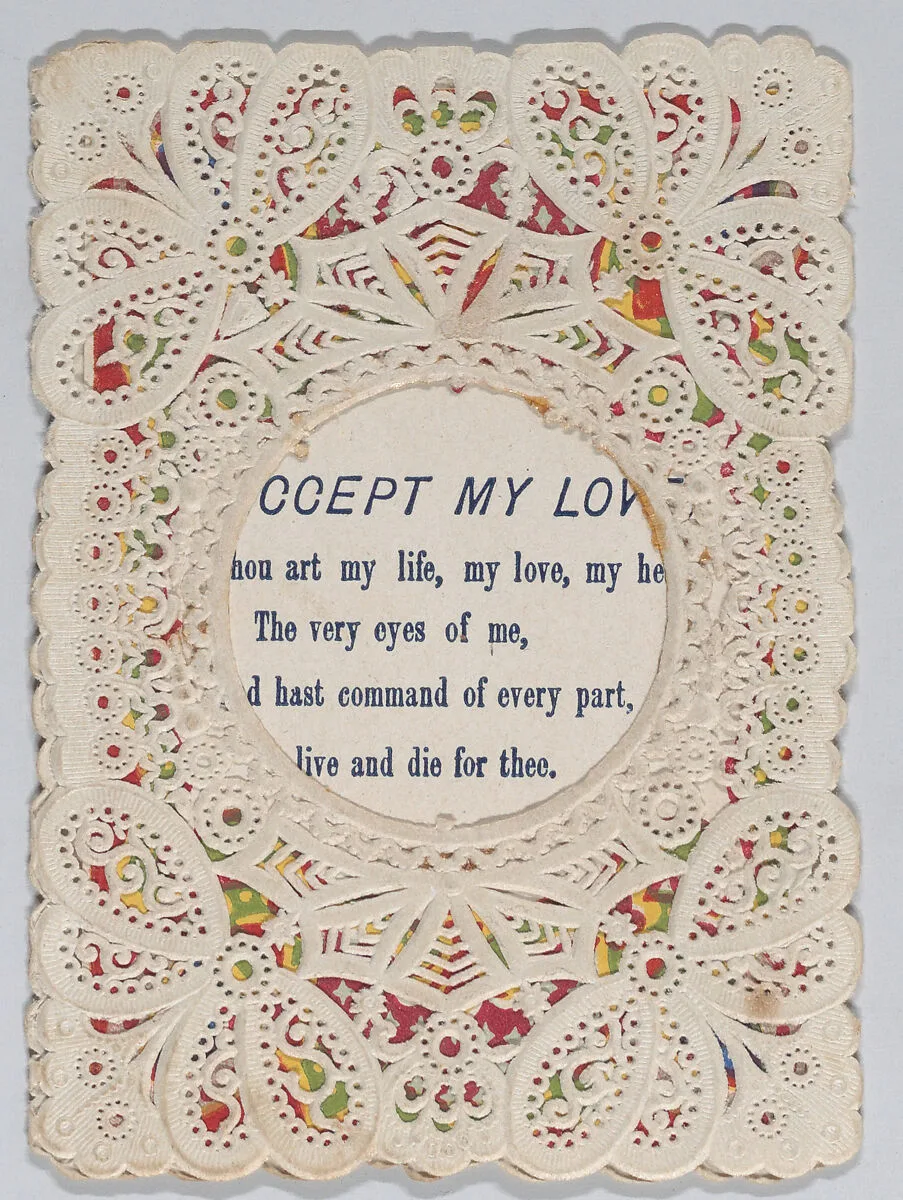 CCEPT MY LOV
hou art my life, my love, my he
The very eyes of me,
d hast command of every part,
live and die for thee.